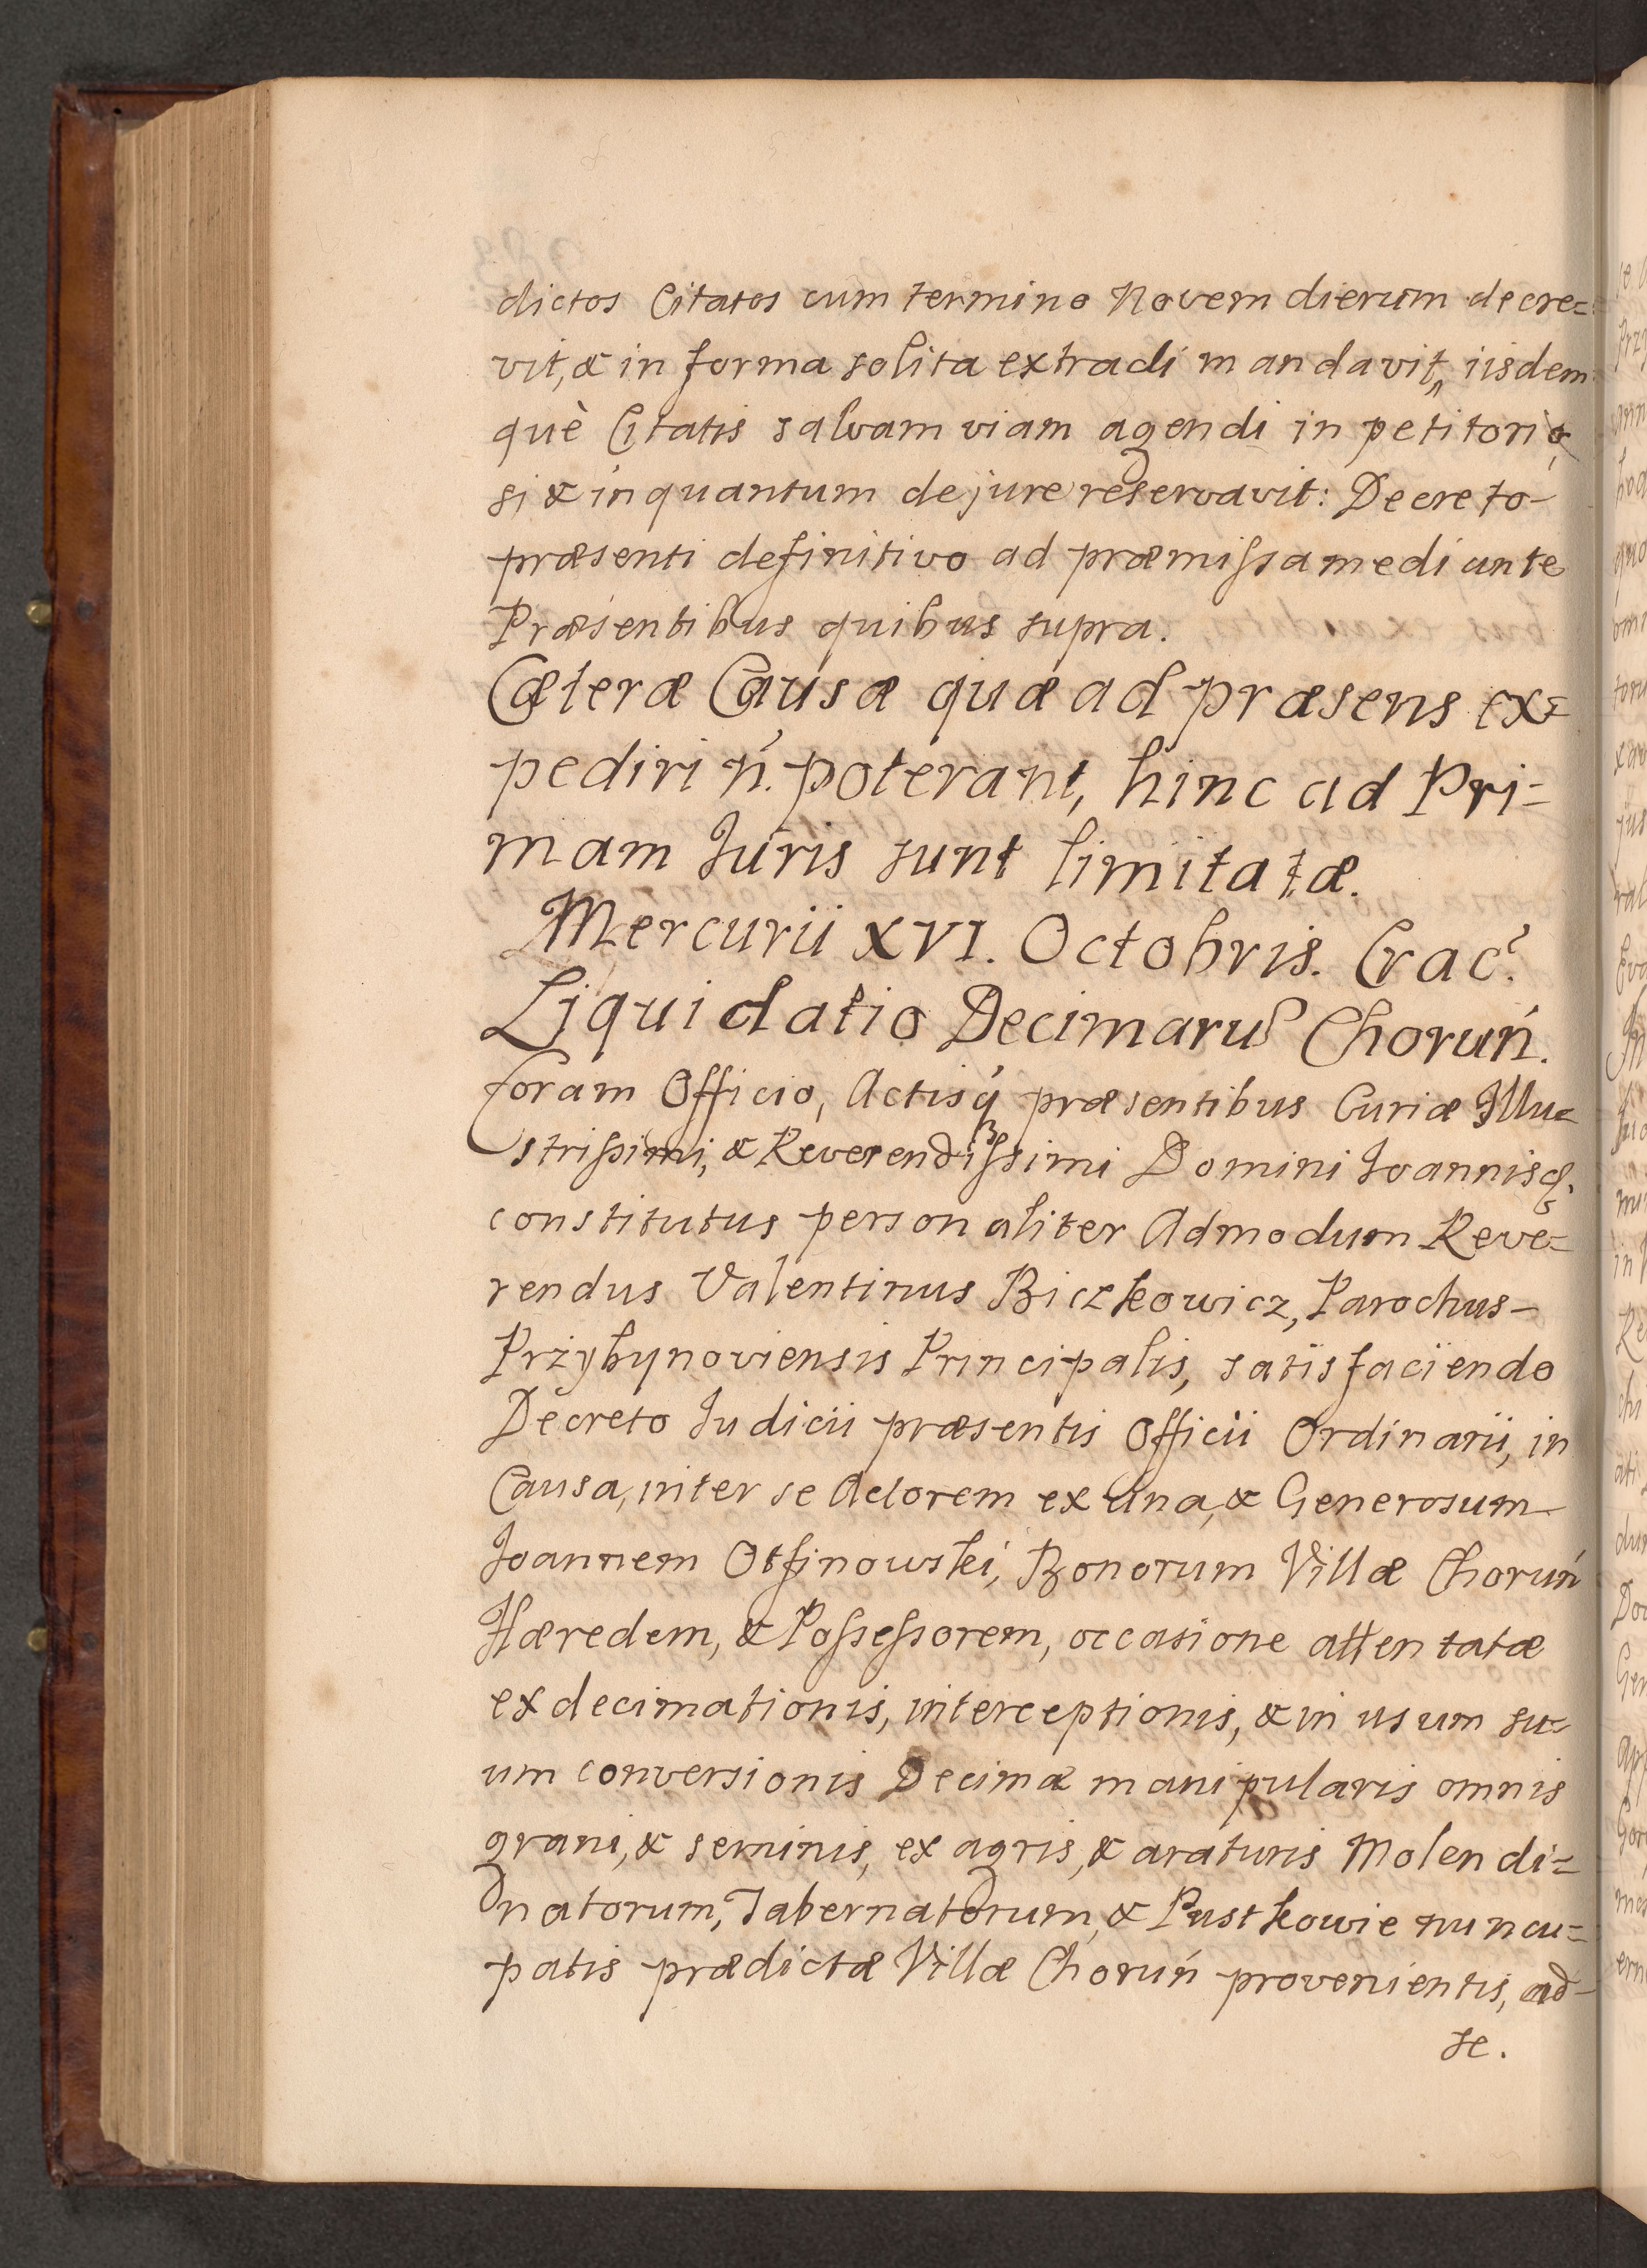 dictos Citatos cum termino Novem dierum decre=
vit, & in forma solita extradi mandavit, iisdem
què Citatis salvam viam agendi in petitorio,
si & inquantum de jure reservavit: Decreto-
præsenti definitivo ad præmissa mediante
Præsentibus quibus supra.
Cæteræ Causæ quæ ad præsens ex=
pediri ń. poterant, hinc ad Pri=
mam Juris sunt limitatæ.
Mercurii XVI. Octobris. Crac?
Liquidatio Decimaru Choruń.
Coram Officio, Actisq́ præsentibus Curiæ Illu=
strissimi, & Reverendissimi Domini Joannis &.
constitutus personaliter Admodum Reve=
rendus Valentinus Biczkowicz, Parochus-
Prżybynoviensis Principalis, satisfaciendo
Decreto Judicii præsentis Officii Ordinarii, in
Causa, inter se Actorem ex una, & Generosum
Joannem Otfinowski, Bonorum Villæ Choruń
Hæredem, & Possessorem, occasione attentatæ
exdecimationis, interceptionis, & in usum su=
um conversionis Decimæ manipularis omnis
grani, & seminis, ex agris, & araturis Molendi=
natorum, Tabernatorum, & Pustkowie nuncu=
patis prædictæ Villæ Choruń provenientis, ad-
se.